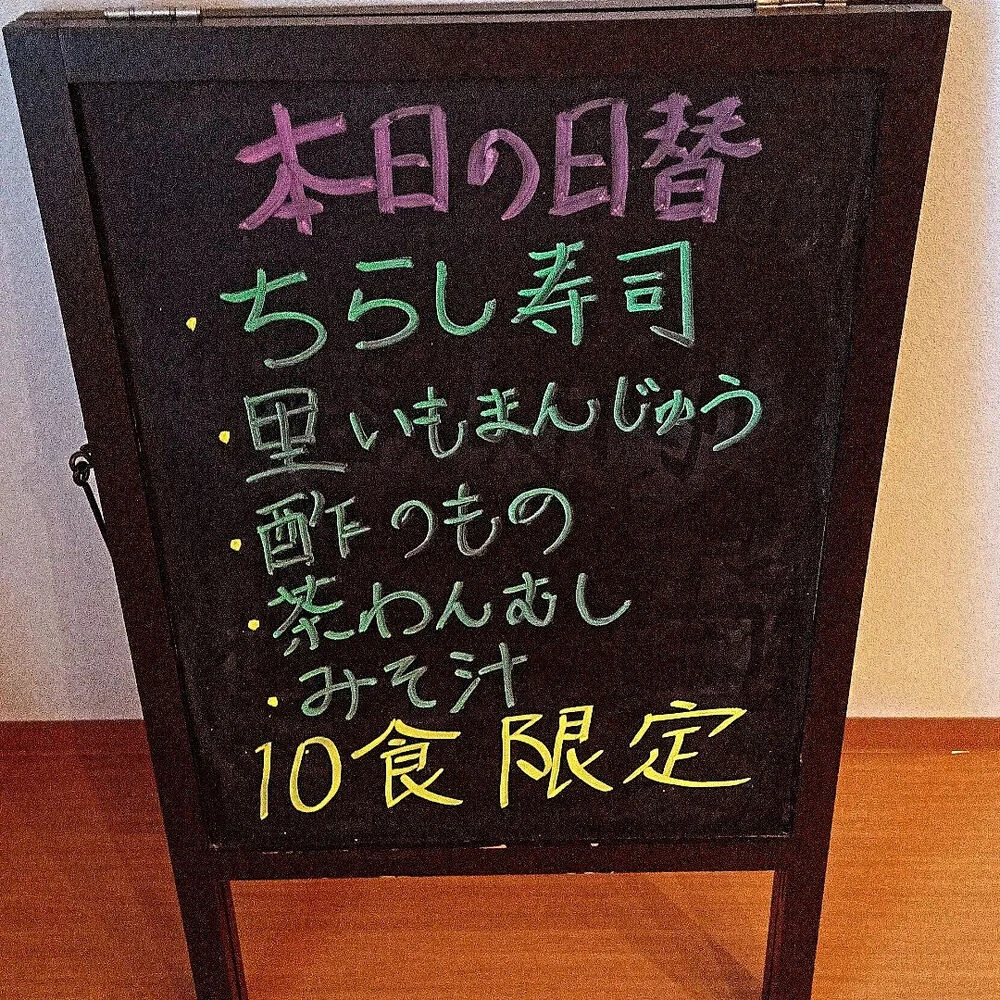 本日の日替
・ちらし寿司
・里いもまんじゅう
・酢のもの
・茶わんむし
・みそ汁
10食限定